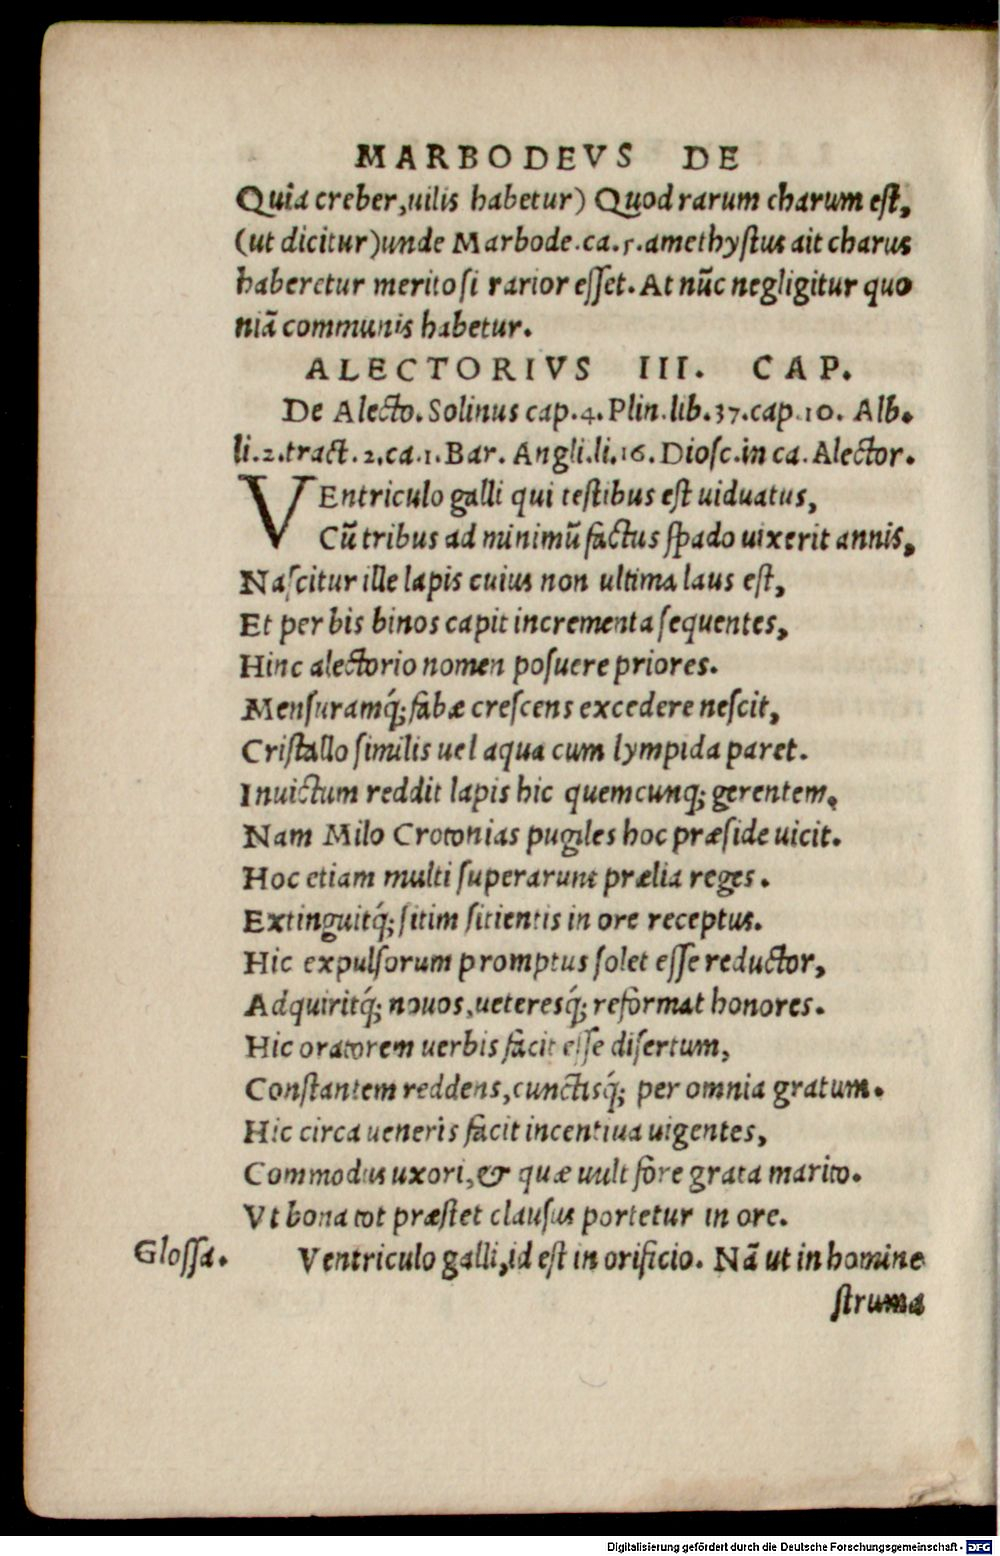 MARBODEVS DE
Quia creber,uilis habetur) Quod rarum charum est,
(ut dicitur)unde Marbode.ca.5.amethystus ait charus
haberetur merito si rarior esset. At nũc negligitur quo
niã communis habetur.
ALECTORIVS III. CAP.
De Alecto. Solinus cap.4. Plin.lib.37.cap.10. Alb.
li.2.tract.2.ca.1.Bar. Angli.li.16.Diosc.in ca.Alector.
VEntriculo galli qui testibus est uiduatus,
Cũ tribus ad minimũ factus spado uixerit annis,
Nascitur ille lapis cuius non ultima laus est,
Et per bis binos capit incrementa sequentes,
Hinc alectorio nomen posuere priores.
Mensuramq́; fabæ crescens excedere nescit,
Cristallo similis uel aqua cum lympida paret.
Inuictum reddit lapis hic quemcunq; gerentem,
Nam Milo Crotonias pugiles hoc præside uicit.
Hoc etiam multi superarunt prælia reges.
Extinguitq́; sitim sitientis in ore receptus.
Hic expulsorum promptus solet esse reductor,
Adquiritq́; nouos,ueteresq́; reformat honores.
Hic oratorem uerbis facit esse disertum,
Constantem reddens,cunctisq́; per omnia gratum.
Hic circa ueneris facit incentiua uigentes,
Commodus uxori,& quæ uult fore grata marito.
Vt bona tot præstet clausus portetur in ore.
Glossa. Ventriculo galli,id est in orificio. Nã ut in homine
struma
Digitalisierung gefördert durch die Deutsche Forschungsgemeinschaft - DFG